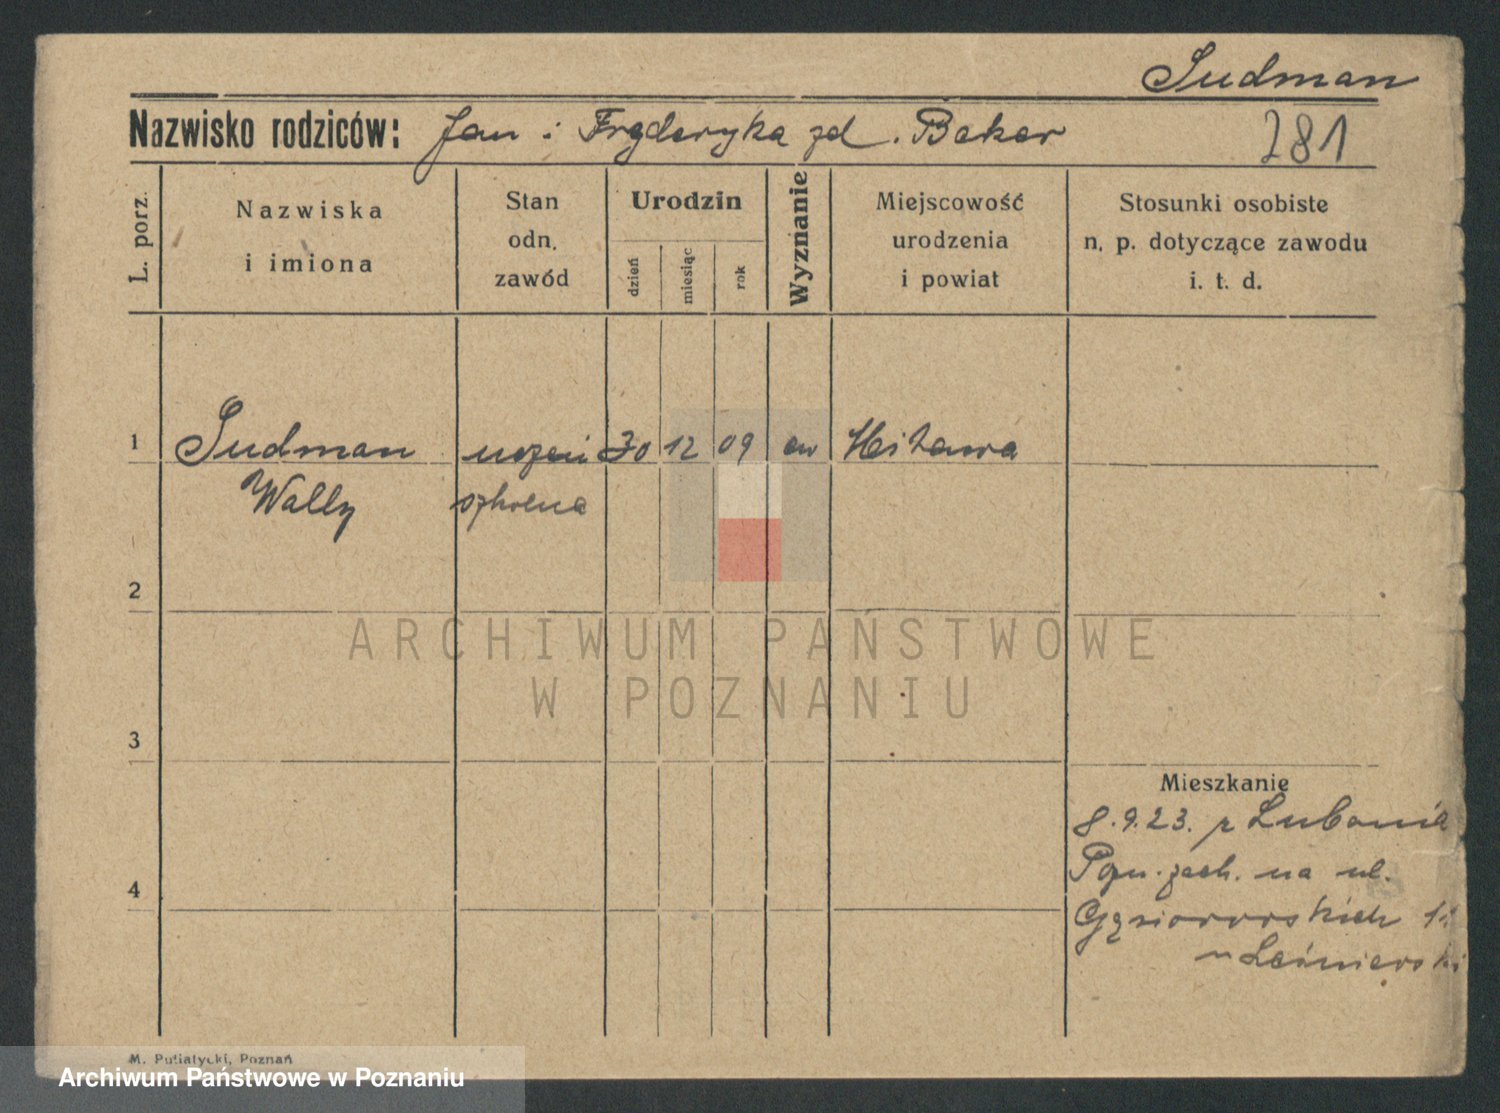 Sudman
Nazwisko rodziców: Jan i Fryderyka zd. Beker
281
L. porz.
Nazwiska
i imiona
Stan
odn.
zawód
Urodzin
dzień
miesiąc
rok
Wyznanie
Miejscowość
urodzenia
i powiat
Stosunki osobiste
n. p. dotyczące zawodu
i. t. d.
1 Sudman uczeń 30 12 09 ew
Wally szkolna
2
ARCHIWUM PAŃSTWOWE
W POZNANIU
3
Mieszkanie
8.9.23. z Lubonia
4
Pozn. zach. na ul.
Gąsiorowskich
M. Putiatycki, Poznań
Archiwum Państwowe w Poznaniu